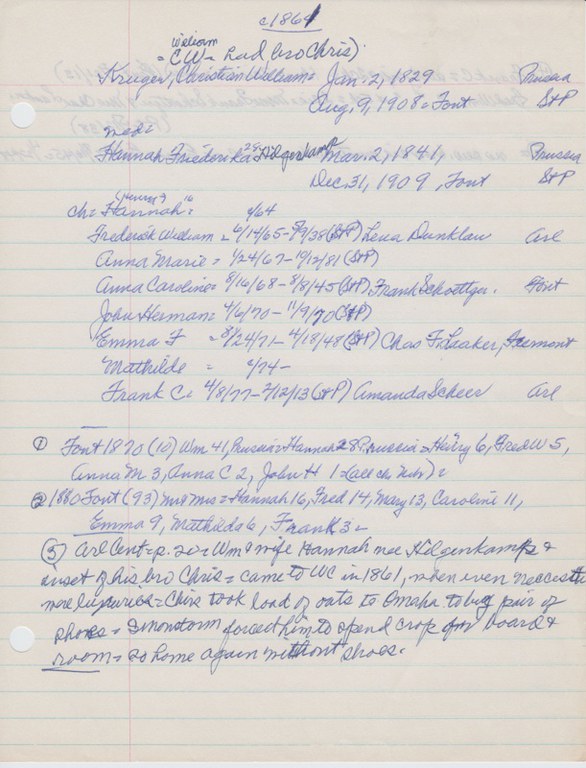 c1864
William
= CW = had bro Chris)
Kruger, Christian William = Jan. 2, 1829 Prussia
Aug. 9, 1908 = Font StP
med =
Hannah Friederika 29 Hilgenkamp Mar. 2, 1841, Prussia
Dec. 31, 1909, Font StP
(Henry?)
ch = Hannah = 16 4/64
Frederick William = 6/14/65 - 9/9/38 (StP) Lena Dunklau Arl
Anna Marie = 1/24/67 - 10/12/81 (StP)
Anna Caroline = 8/16/68 - 8/8/45 (StP) Frank Schoettger. Font
John Herman = 4/6/70 - 11/9/70 (StP)
Emma F = 8/24/71 - 4/18/48 (StP) Chas F. Laaker, Fremont
Mathilde = 4/74 -
Frank C = 4/8/77 - 2/12/13 (StP) Amanda Scheer Arl
① Font 1870 (10) Wm 41, Prussia = Hannah 28 Prussia = Henry 6, Fred W 5,
Anna M 3, Anna C 2, John H 1 (all ch Nebr) =
② 1880 Font (93) Mr & Mrs = Hannah 16, Fred 14, Mary 13, Caroline 11,
Emma 9, Mathilda 6, Frank 3 =
③ Arl Cent = p. 20 = Wm & wife Hannah nee Hilgenkamp &
inset of his bro Chris = came to WC in 1861, when even necessities
were luxuries = Chris took load of oats to Omaha to buy pair of
shoes = snowstorm forced him to spend crop for board &
room = so home again without shoes.